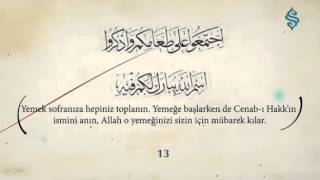 اجتمعوا على طعامكم واذكروا
اسم الله يبارك لكم فيه
Yemek sofranıza hepiniz toplanın. Yemeğe başlarken de Cenab-ı Hakk'ın
ismini anın, Allah o yemeğinizi sizin için mübarek kılar.
13